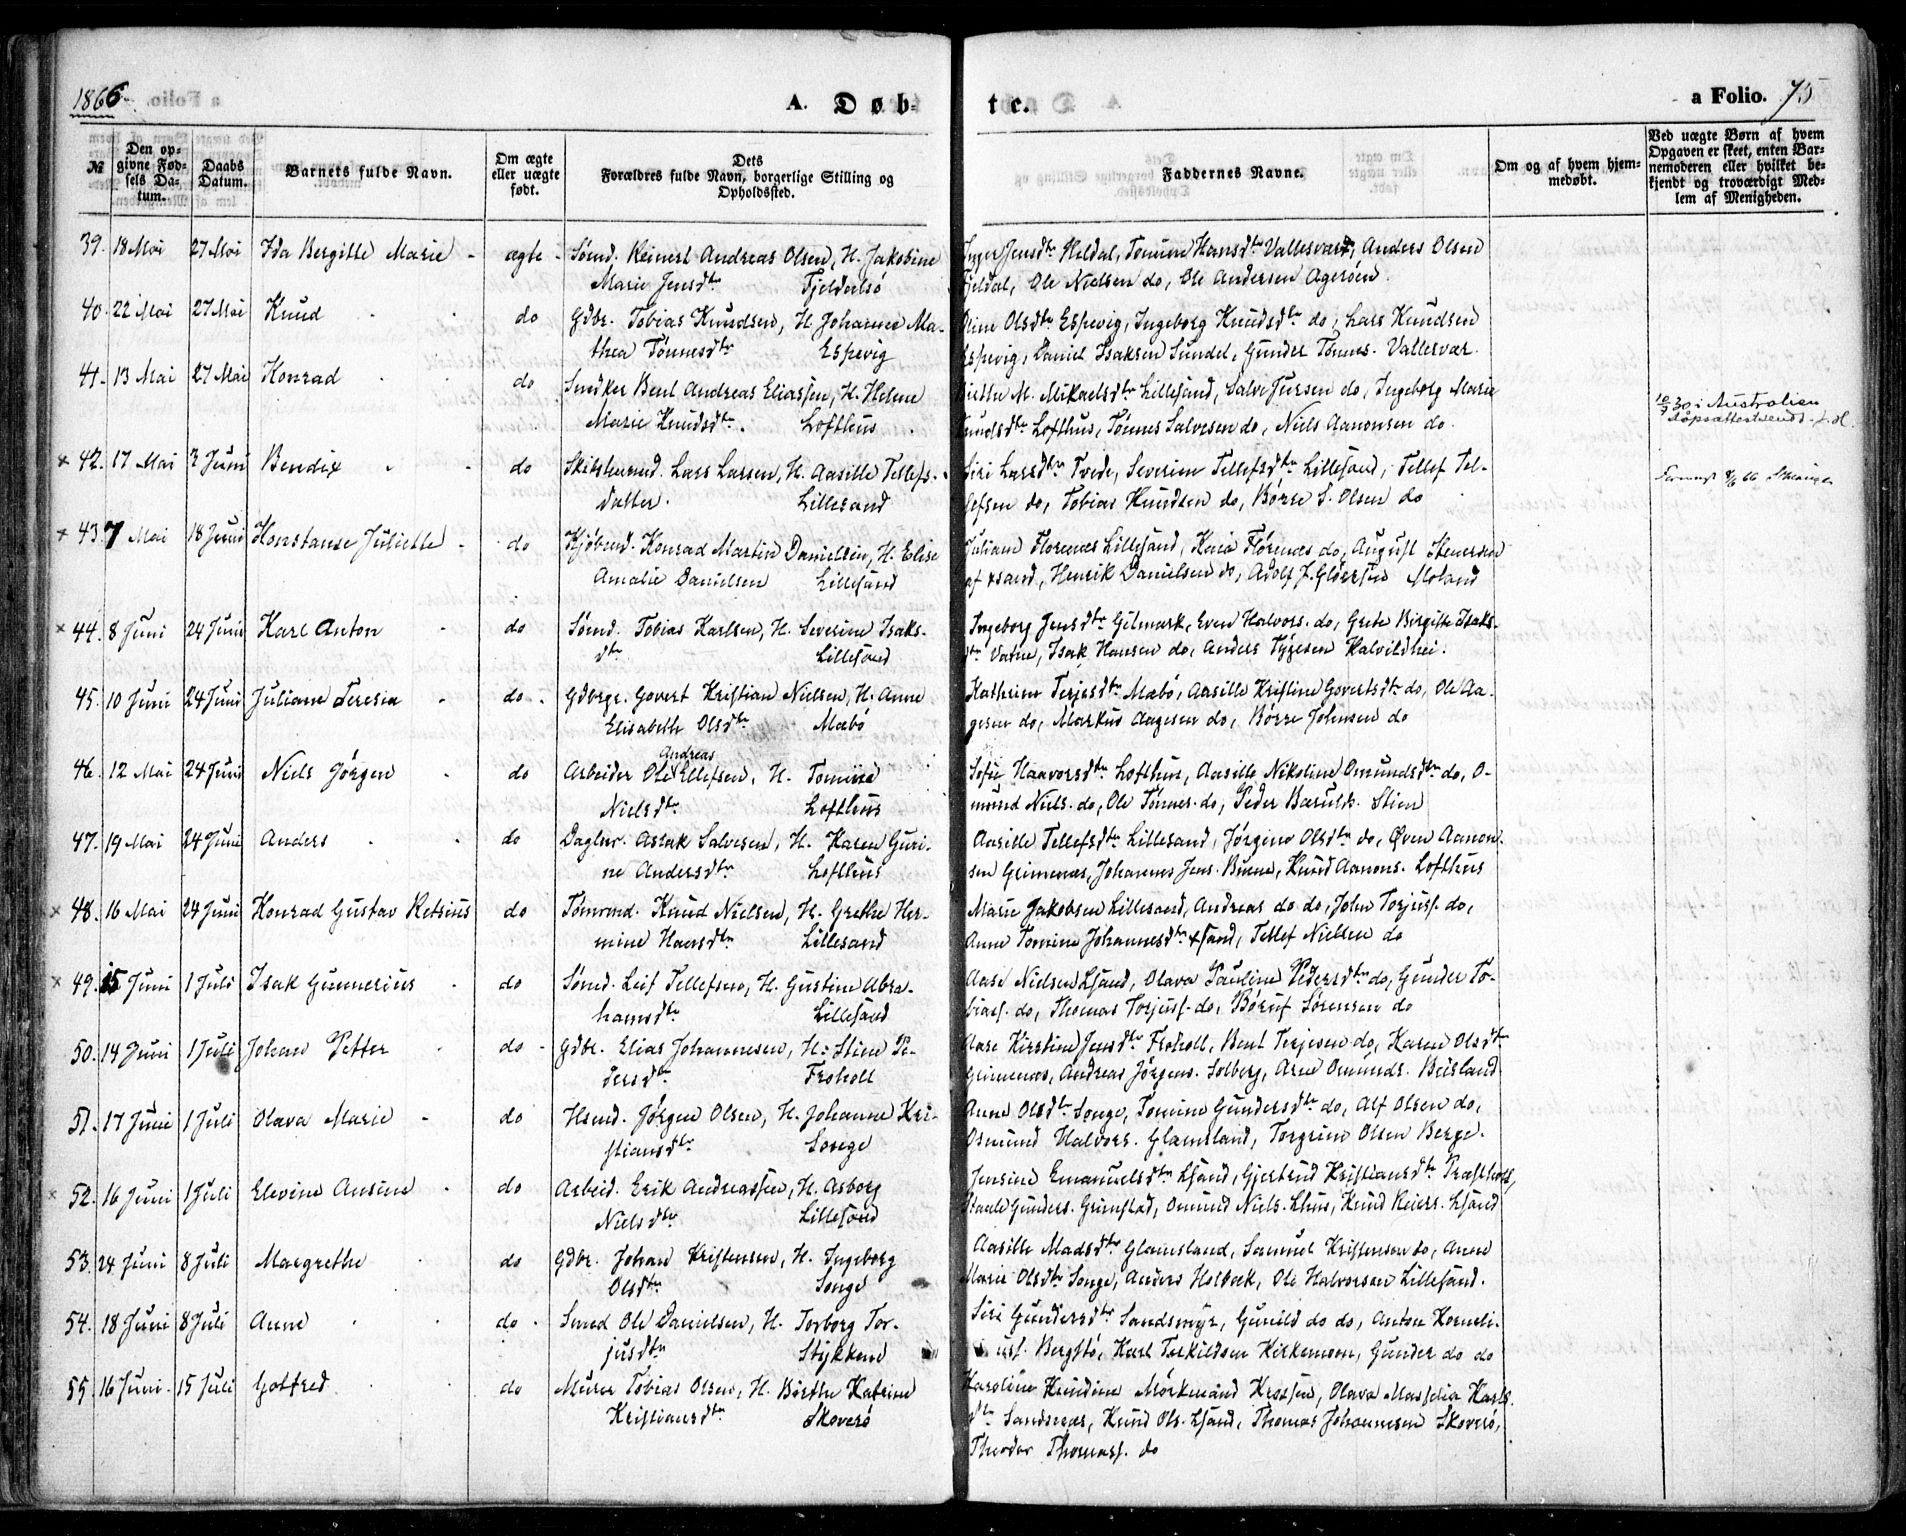 1866.
A. Døb-
te.
a Folio. 75
№
Den opgivne Fødsels Datum.
Daabs Datum.
Barnets fulde Navn.
Om ægte eller uægte født.
Dets Forældres fulde Navn, borgerlige Stilling og Opholdssted.
Faddernes Navne.
Om og af hvem hjemmedøbt.
Ved uægte Børn af hvem Opgaven er skeet, enten Barnemoderen eller hvilket bekjendt og troværdigt Medlem af Menigheden.
39. 18 Mai 27 Mai Ida Bergitte Marie - ægte - Sømd. Reinert Andreas Olsen, H. Jakobine
Marie Jensdtr Fjeldalsø
Inger Jensdtr Heldal, Tomine Hansdtr Vallesvær, Anders Olsen
Fjeldal, Ole Nielsen do, Ole Andersen Agerøen
40. 22 Mai 27 Mai Knud do Gdbr. Tobias Knudsen, H. Johanne Ma-
thea Tønnesdtr Espevig
Oline Olsdtr Espevig, Ingeborg Knudsdtr do, Lars Knudsen
Espevig, Daniel Isaksen Sundet, Gunder Tønnes. Vallesvær.
41. 13 Mai 27 Mai Konrad do Snedker Bent Andreas Eliassen, H. Helene
Marie Knudsdtr. Lofthus
Birthe M. Mikaelsdtr Lillesand, Salve Jursen do, Ingeborg Marie
Knudsdtr Lofthus, Tønnes Salvesen do, Niels Aanonsen do
10/7 30 i Australien
× 42. 17 Mai 3 Juni Bendix do Skibstømmd. Lars Larsen, H. Aasille Tellefs-
datter. Lillesand
Siri Larsdtr Tvede, Severine Tellefsdtr Lillesand, Tellef Tel-
lefsen do, Tobias Knudsen do, Børre S. Olsen do
× 43. 7 Mai 18 Juni Konstanse Juliette - do Kjøbmd. Konrad Martin Danielsen, H. Elise
Amalie Danielsen Lillesand
Juliane Florenæs Lillesand, Kaia Florenæs do, August Stenersen
af Xsand, Henrik Danielsen do, Adolf J. Gløersen Moland
× 44. 8 Juni 24 Juni Karl Anton - do Sømd. Tobias Karlsen, H. Severine Isaks-
dtr Lillesand
Ingeborg Jensdtr Gitmark, Even Halvors. do, Grete Birgitte Isaks-
dtr Vatne, Isak Hansen do, Anders Tygesen Kalvildhei.
45. 10 Juni 24 Juni Juliane Teresia - do. Gdbrgr. Govert Kristian Nielsen, H. Anne
Elisabeth Olsdtr Mæbø
Kathrine Terjesdtr Mæbø, Aasille Kristine Govertsdtr do, Ole Aa-
gesen do, Markus Aagesen do, Børre Johnsen do
46. 12 Mai 24 Juni Niels Jørgen - do Arbeider Ole Andreas Ellefsen, H. Tomine
Nielsdtr Lofthus
Sofie Haavorsdtr Lofthus, Aasille Nikoline Omundsdtr do, O-
mund Niels. do, Ole Tønnes. do, Peder Stien
47. 19 Mai 24 Juni Anders do Daglnr. Aslak Salvesen, H. Karen Guri-
ne Andersdtr Lofthus
Aasille Tellefsdtr Lillesand, Jørgine Olsdtr do, Øven Aanon-
sen Grimenæs, Johannes Jens. Buene, Knud Aanons. Lofthus
× 48. 16 Mai 24 Juni Konrad Gustav Retsius do Tømmd. Knud Nielsen, H. Grethe Her-
mine Hansdtr Lillesand
Marie Jakobsen Lillesand, Andreas do do, John Torjuss. do,
Anne Tomine Johannesdtr Xsand, Tellef Nielsen do
× 49. 15 Juni 1 Juli Isak Gunnerius do Sømd. Leif Tellefsen, H. Gustine Abra-
hamsdtr Lillesand
Aase Nielsen Lsand, Olava Pauline Pedersdtr do, Gunder To-
biass. do, Thomas Torjuss. do, Børuf Sørensen do
50. 14 Juni 1 Juli Johan Petter do - Gdbr. Elias Johannesen, H. Stine Pe-
dersdtr. Froholt
Aase Kirstine Jensdtr Froholt, Bent Terjesen do, Karen Olsdtr
Grimenæs, Andreas Jørgens. Solberg, Arne Omunds. Beisland
51. 17 Juni 1 Juli Olava Marie - do Hsmd. Jørgen Olsen, H. Johanne Kri-
stiansdtr Songe
Anne Olsdtr Songe, Tomine Gundersdtr do, Alf Olsen do,
Osmund Halvors. Glamsland, Torgrim Olsen Berge.
× 52. 16 Juni 1 Juli Elevine Ansine - do Arbeid. Erik Andreassen, H. Asborg
Nielsdtr Lillesand
Jensine Emanuelsdtr Lsand, Gjertrud Kristiansdtr Præstholt,
Staale Gunders. Grimstad, Omund Niels. Lhus, Knud Reiers. Lsand
53. 24 Juni 8 Juli Margrethe do Gdbr. Johan Kristensen, H. Ingeborg
Olsdtr Songe
Aasille Madsdtr Glamsland, Samuel Kristensen do, Anne
Marie Olsdtr Songe, Anders Holbæk, Ole Halvorsen Lillesand.
54. 18 Juni 8 Juli Anne do - Smed Ole Danielsen, H. Torborg Tor-
jusdtr Stykkene
Siri Gundersdtr Sandsmyr, Gunild do do, Anton Korneli-
uss. Bergstø, Karl Terkildsen Kirkemoen, Gunder do do
55. 16 Juni 15 Juli Gotfred do Murer Tobias Olsen, H. Birthe Katrine
Kristiansdtr Skoverø
Karoline Knudine Mørkmand Krossen, Olava Masselia Karls-
dtr Sandsnæs, Knud Ols. Lsand, Thomas Johannesen Skoverø,
Theodor Thomass. do